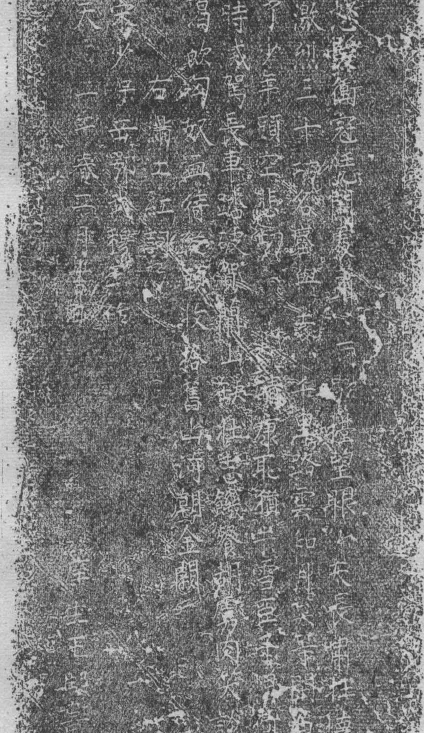 怒髮衝冠凭闌處雨歇擡望眼仰天長嘯壯懷
激烈三十功名塵與土八千里路雲和月莫等閒白
了少年頭空悲切靖康恥猶未雪臣子恨
時滅駕長車踏破賀蘭山缺壯志饑餐胡虜肉笑談
渴飲匈奴血待頭收拾舊山河朝金闕
右滿江紅詞
宋少保岳鄂武穆作
天二年春二月吉日
庠生王熙